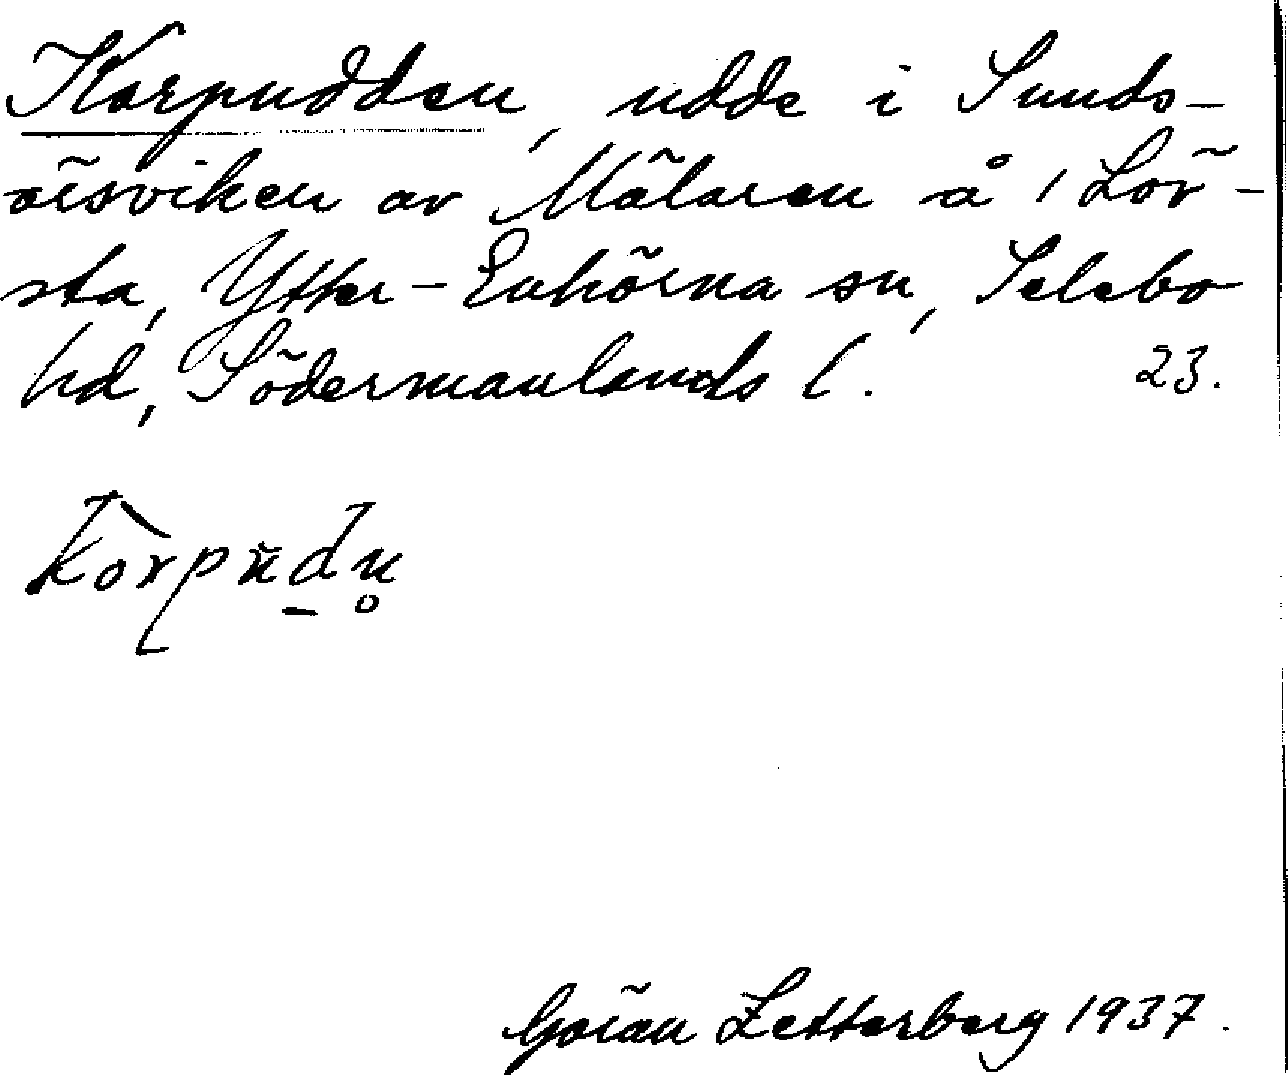 Korpudden, udde i Sunds-
örsviken av Mälaren å 1 Löv-
sta, Ytter-Enhörna sn, Selebo
hd, Södermanlands l. 23.
Göran Zetterberg 1937.